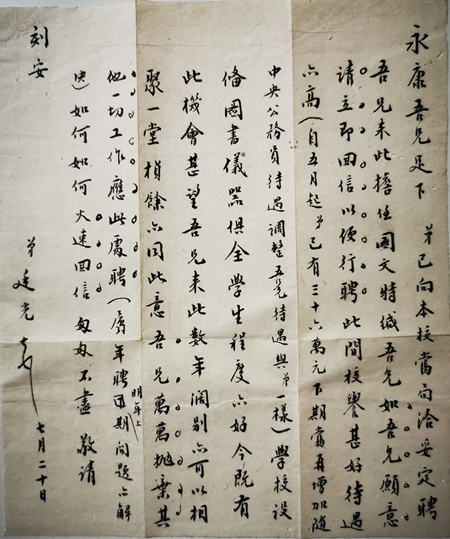 永康吾兄足下 弟已向本校當局洽妥定聘
吾兄来此擔任國文特緘吾兄如吾兄願意
請立即回信以便行聘此間校譽甚好待遇
六高(自五月起弟已有三十六萬元下期當再增加随
中央公務員待遇調整吾兄待遇與弟一樣)學校設
俻圖書儀器俱全學生程度亦好今既有
此機會甚望吾兄来此数年濶别亦可以相
聚一堂楨餘亦同此意吾兄萬萬抛棄其
他一切工作應此處聘(
年聘
期問題亦解
明年上
决)如何如何火速回信匆匆不盡 敬請
刻安
弟廷光
七月二十日